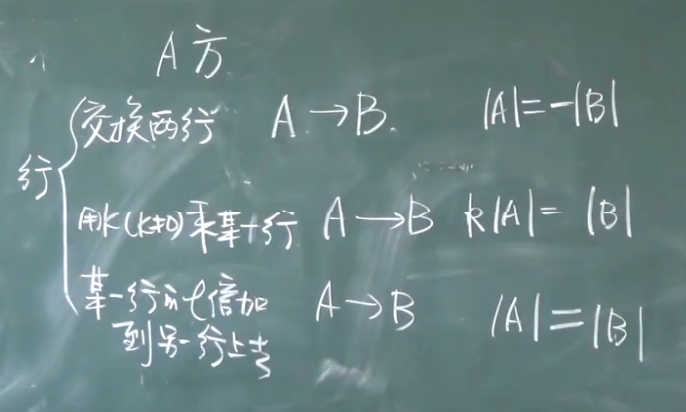 A方
行
交换两行 A→B |A|=-|B|
用k(k≠0)乘某一行 A→B k|A|=|B|
某一行的l倍加 A→B |A|=|B|
到另一行上去